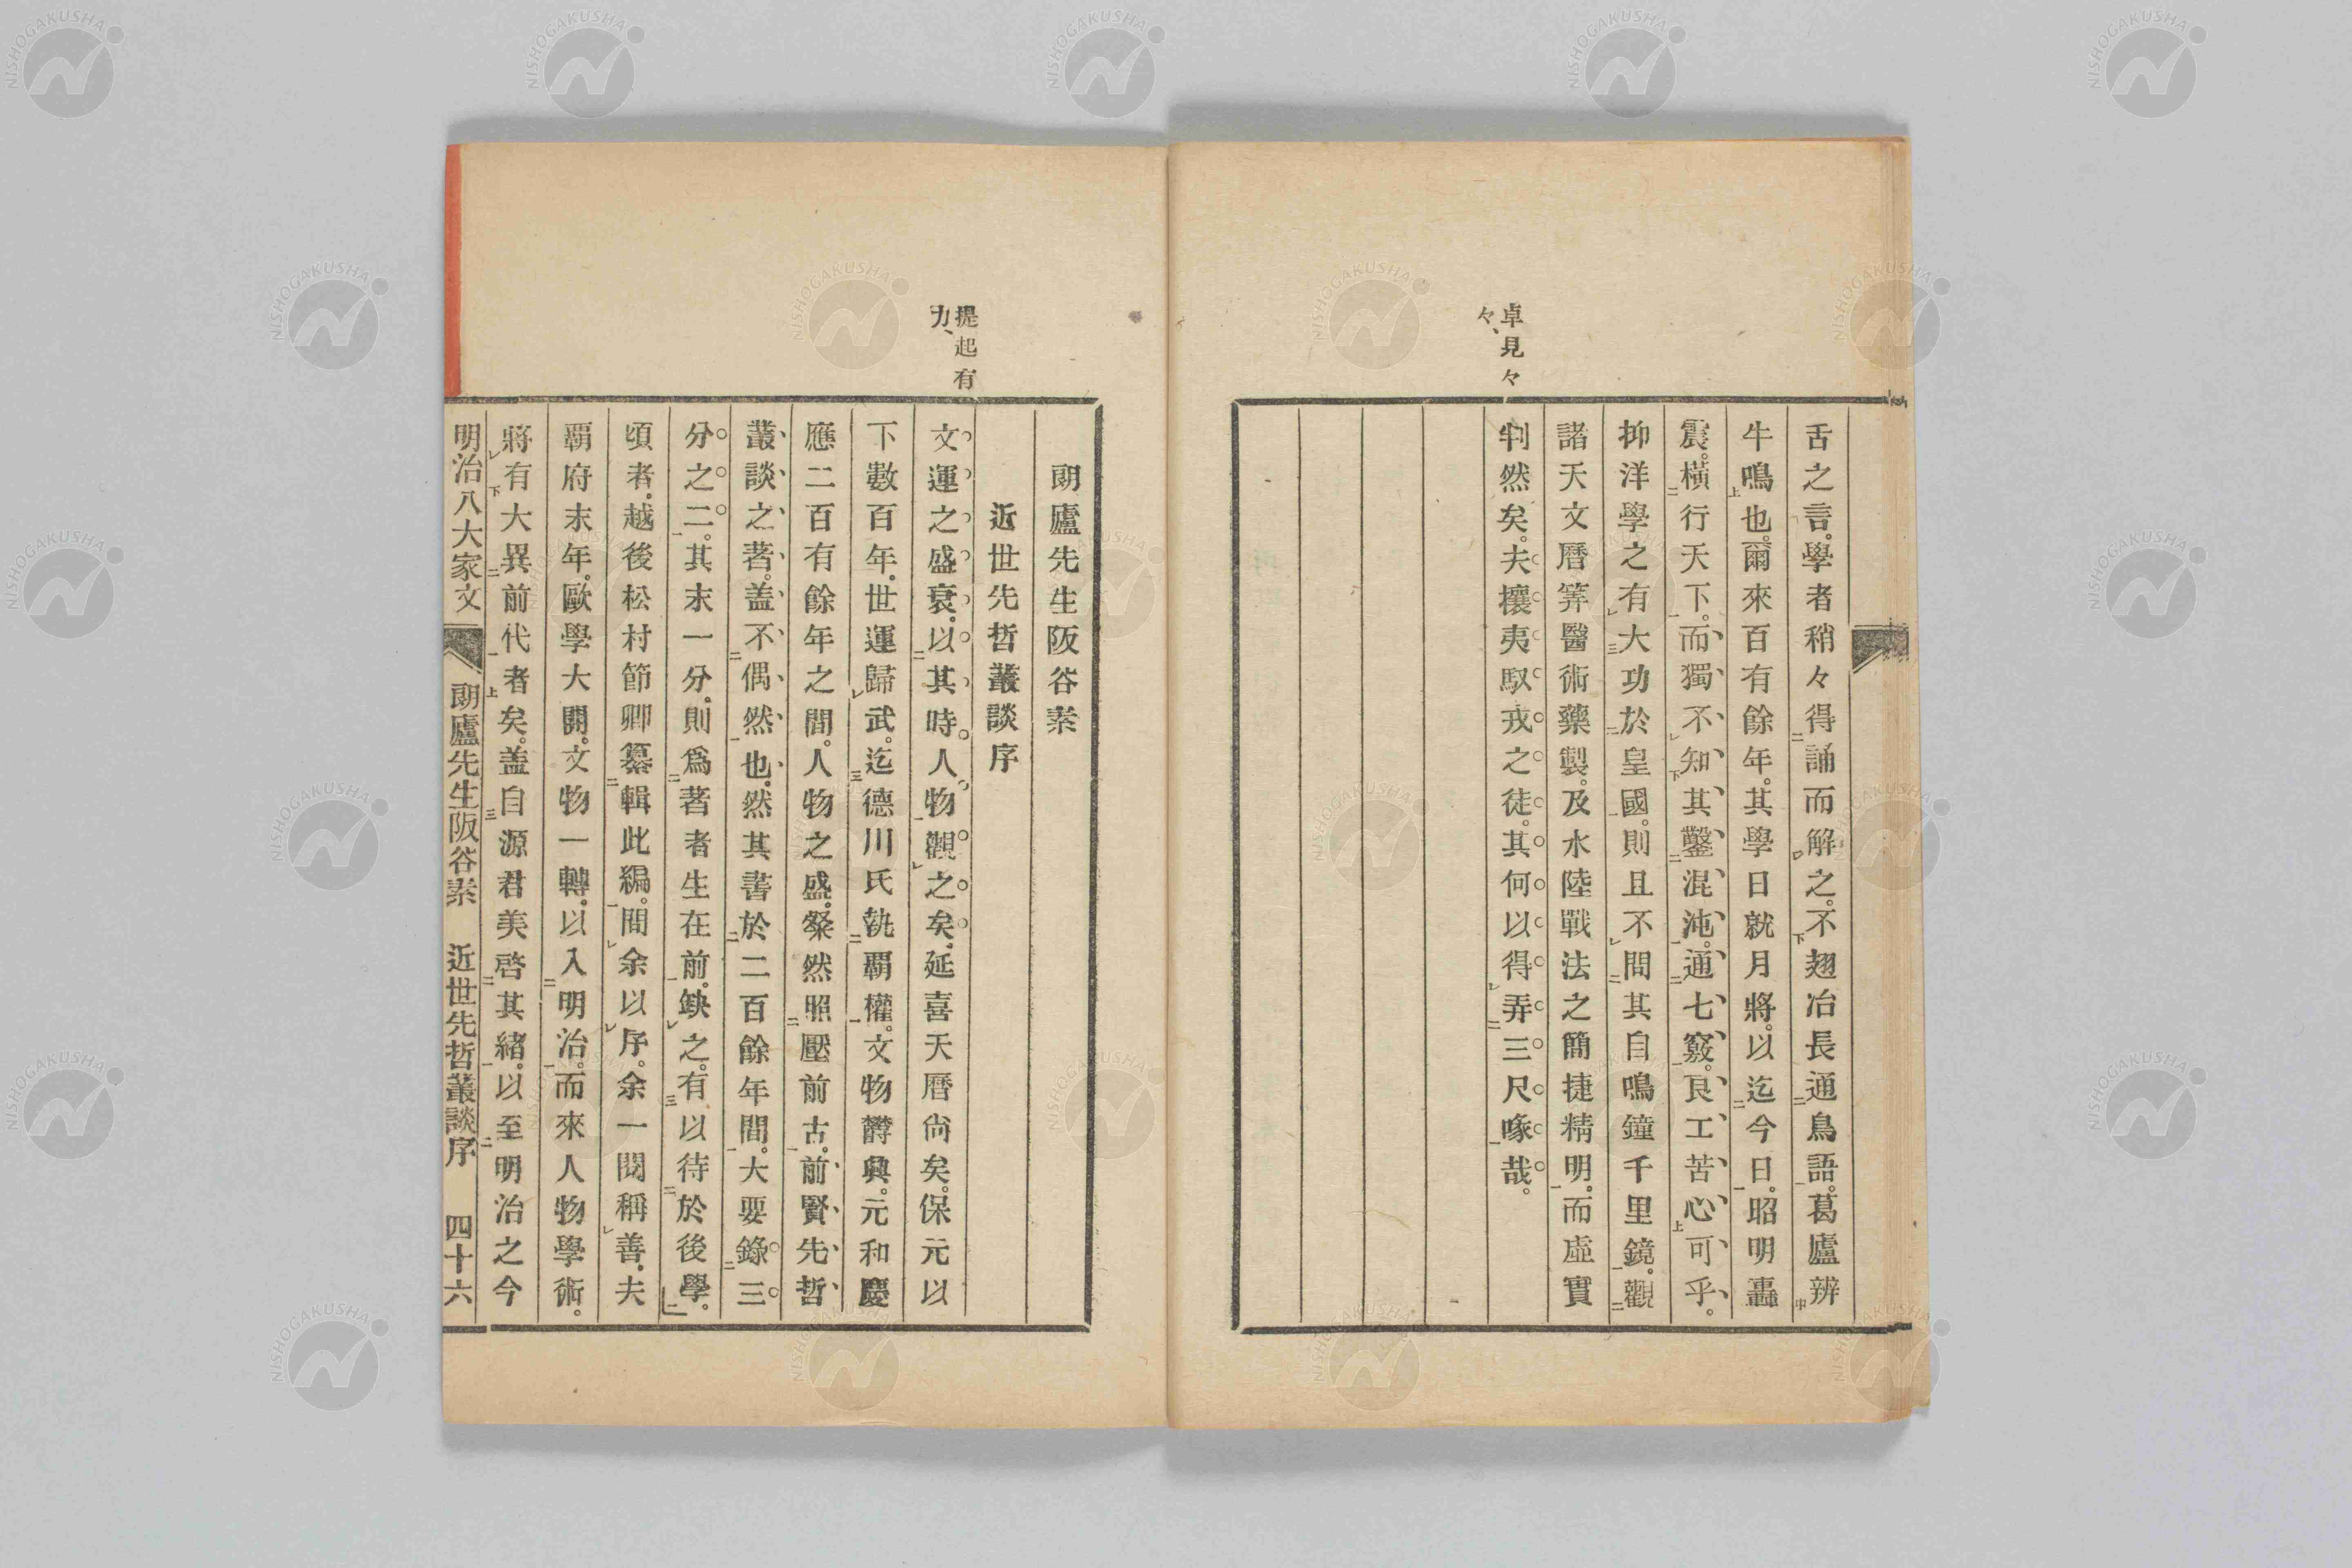 卓見々
々、
舌之言。學者稍々得誦而解之。不翅冶長通鳥語。葛廬辨
牛鳴也。爾來百有餘年。其學日就月將。以迄今日。昭明轟
震。橫行天下。而獨不知其鑿混沌。通七竅。良工苦心可乎。
抑洋學之有大功於皇國。則且不問其自鳴鐘千里鏡。觀
諸天文曆筭醫術藥製。及水陸戰法之簡捷精明。而虛實
判然矣。夫攘夷馭戎之徒。其何以得弄三尺喙哉。
提起有
力、
朗廬先生阪谷素
近世先哲叢談序
文運之盛衰。以其時人物觀之矣。延喜天曆尙矣。保元以
下數百年。世運歸武。迄德川氏執覇權。文物欝興。元和慶
應二百有餘年之間。人物之盛。粲然照壓前古。前賢先哲
叢談之著。盖不偶然也。然其書於二百餘年間。大要錄三
分之二。其末一分。則爲著者生在前。缺之。有以待於後學。
頃者。越後松村節卿纂輯此編。間余以序。余一閲稱善。夫
覇府末年。歐學大開。文物一轉。以入明治。而來人物學術。
將有大異前代者矣。盖自源君美啓其緖。以至明治之今
明治八大家文 朗廬先生阪谷素 近世先哲叢談序 四十六
NISHOGAKUSHA